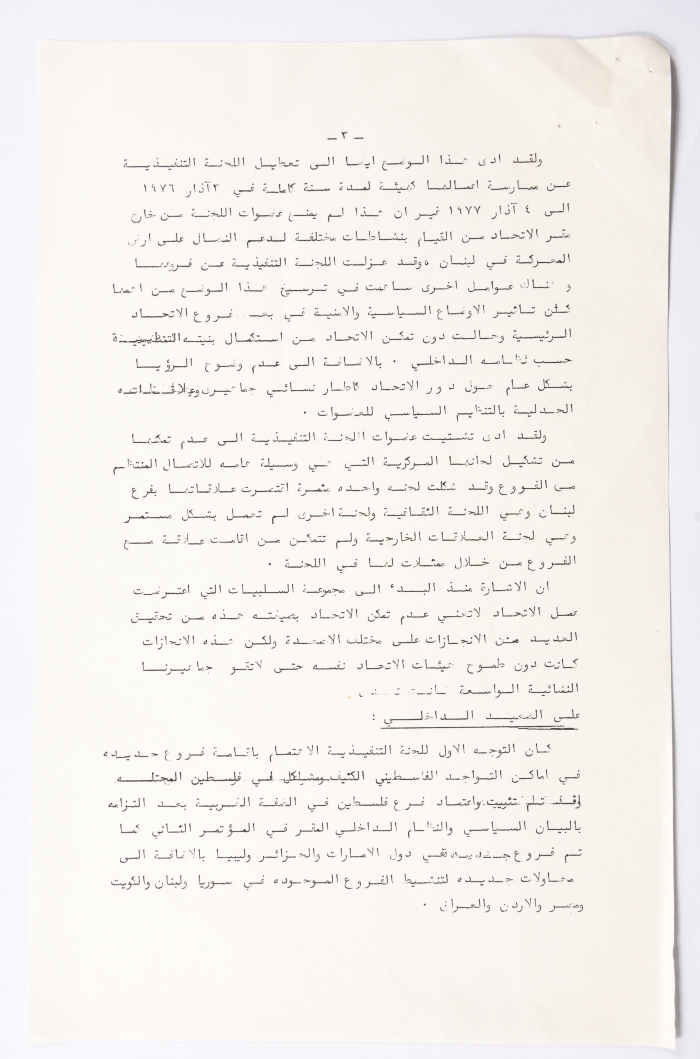 — ٣ —
ولقد ادى هذا الوضع ايضا الى تعطيل اللجنة التنفيذية
عن ممارسة اعمالها كهيئة لمدة سنة كاملة في ٣ آذار ١٩٧٦
الى ٤ آذار ١٩٧٧ غير ان هذا لم يمنع عضوات اللجنة من خارج
مقر الاتحاد من القيام بنشاطات مختلفة لدعم النضال على ارض
المعركة في لبنان ، وقد عزلت اللجنة التنفيذية عن فروعها
و هناك عوامل اخرى ساهمت في ترسيخ هذا الوضع من اهمها
كان تاثير الاوضاع السياسية والامنية في بعض فروع الاتحاد
الرئيسية وحالت دون تمكن الاتحاد من استكمال بنيته التنظيمية
حسب نظامه الداخلي . بالاضافة الى عدم وضوح الرؤيا
بشكل عام حول دور الاتحاد كاطار نسائي جماهيري وعلاقاته
الجدلية بالتنظيم السياسي للعضوات .
ولقد ادى تشتيت عضوات اللجنة التنفيذية الى عدم تمكنها
من تشكيل لجانها المركزية التي هي وسيلة هامه للاتصال المنتظم
مع الفروع وقد شكلت لجنه واحده مثمرة اقتصرت علاقاتها بفرع
لبنان وهي اللجنة الثقافية ولجنة اخرى لم تعمل بشكل مستمر
وهي لجنة العلاقات الخارجية ولم تتمكن من اقامت علاقة مع
الفروع من خلال ممثلات لها في اللجنة .
ان الاشارة منذ البدء الى مجموعة السلبيات التي اعترضت
عمل الاتحاد لاتعني عدم تمكن الاتحاد بصيغته هذه من تحقيق
العديد من الانجازات على مختلف الاصعدة ولكن هذه الانجازات
كانت دون طموح هيئات الاتحاد نفسه حتى لاتقو جماهيرنا
النسائية الواسعة كانت
على الصعيد الداخلي :
كان التوجه الاول للجنة التنفيذية الاهتمام باقامة فروع جديده
في اماكن التواجد الفلسطيني الكثيف في فلسطين المحتله
وقد تم تثبيت واعتماد فرع فلسطين في الضفة الغربية بعد التزامه
بالبيان السياسي والنظام الداخلي المقر في المؤتمر الثاني كما
تم فروع جديده في دول الامارات والجزائر وليبيا بالاضافة الى
محاولات جديده لتنشيط الفروع الموجوده في سوريا ولبنان والكويت
ومصر والاردن والعراق .